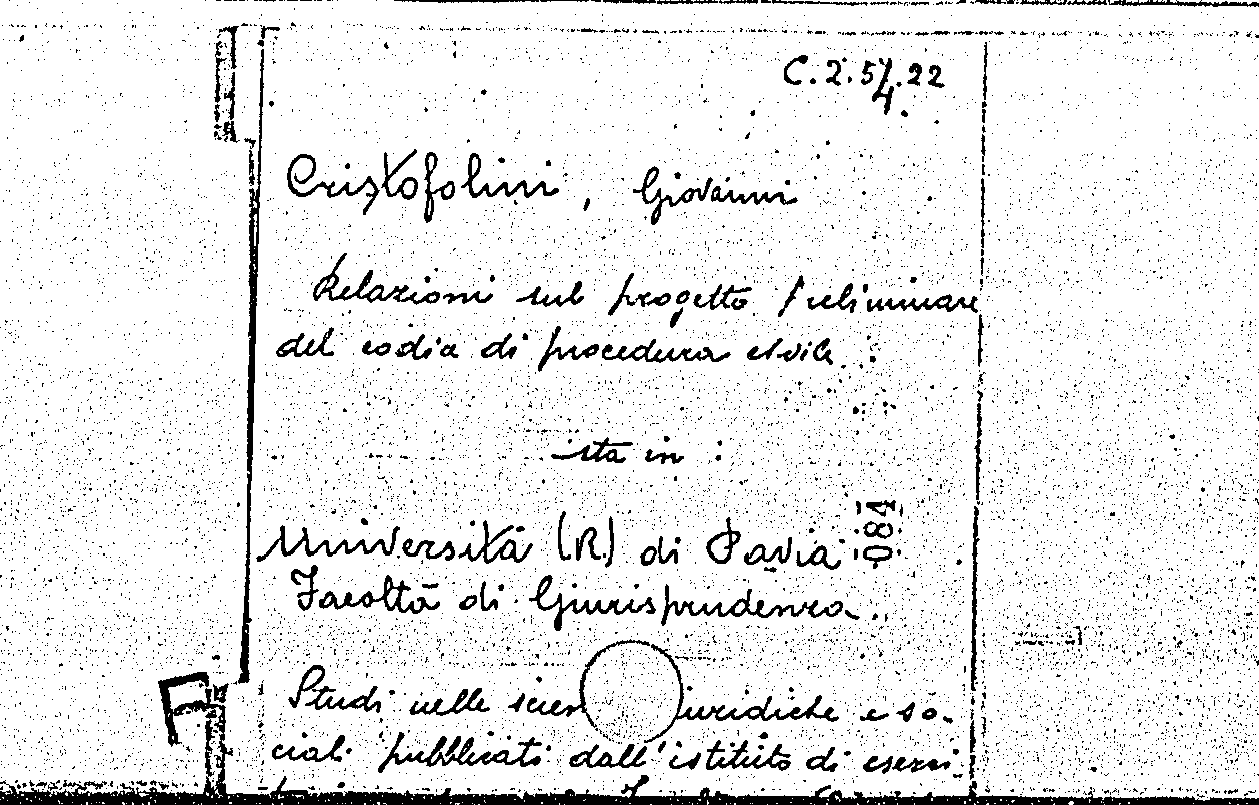 C.2.54.22
Cristofolini, Giovanni
Relazioni sul progetto Preliminare
del codia di procedura civile.
sta in:
084
Università (R.) di Pavia
Facoltà di Giurisprudenza.
Studi nelle scien iuridiche e so-
ciali pubblicati dall'istituto di eserci-